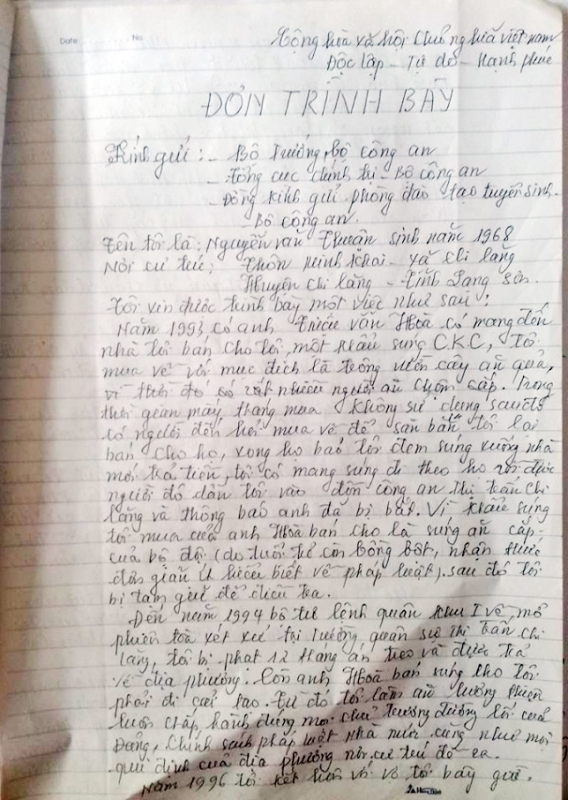 Date: No.
Cộng hòa xã hội Chủ nghĩa việt nam
Độc lập - Tự do - Hạnh phúc
ĐƠN TRÌNH BÀY
Kính gửi: - Bộ Trưởng bộ công an
- tổng cục chính trị - Bộ công an
- Đồng kính gửi phòng đào tạo tuyển sinh -
- Bộ công an.
Tên tôi là; Nguyễn văn thuân sinh năm 1968
Nơi cư trú; Thôn minh khai - xã chi lăng
Huyện chi lăng - tỉnh Lạng sơn.
tôi xin được trình bày một việc như sau:
Năm 1993 có anh triệu văn Hoà có mang đến
nhà tôi bán cho tôi một khẩu súng C.K.C, tôi
mua về với mục đích là trông vườn cây ăn quả,
vì thời đó có rất nhiều người ăn trộm cắp. trong
thời gian mấy tháng mua không sử dụng sau đó
có người đến hỏi mua về để săn bắn tôi lại
bán cho họ, xong họ bảo tôi đem súng xuống nhà
mới trả tiền, tôi có mang súng đi theo họ rồi được
người đó dẫn tôi vào đồn công an thị trấn chi
lăng và thông báo anh đã bị bắt. Vì khẩu súng
tôi mua của anh Hoà bán cho là súng ăn cắp
của bộ đội (do tuổi trẻ còn bồng bột, nhận thức
đơn giản ít hiểu biết về pháp luật). sau đó tôi
bị tạm giữ để điều tra.
Đến năm 1994 bộ tư lệnh quân khu I về mở
phiên toà xét xử tại trường quân sự thị trấn chi
lăng, tôi bị phạt 12 tháng án treo và được trả
về địa phương. Còn anh Hoà bán súng cho tôi
phải đi cải tạo. từ đó tôi làm ăn lương thiện
luôn chấp hành đúng mọi chủ trương đường lối của
Đảng, chính sách pháp luật nhà nước cũng như mọi
qui định của địa phương nơi cư trú đề ra.
Năm 1996 tôi kết hôn với vợ tôi bây giờ.